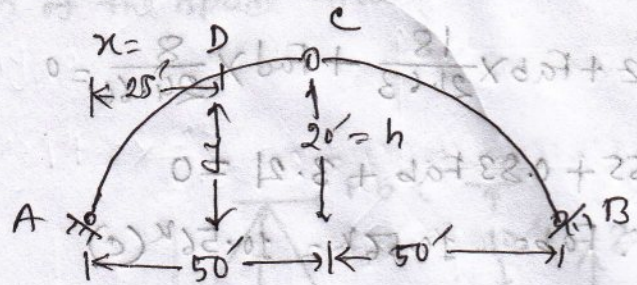 x= D C
25'
y 20' = h
A B
50' 50'